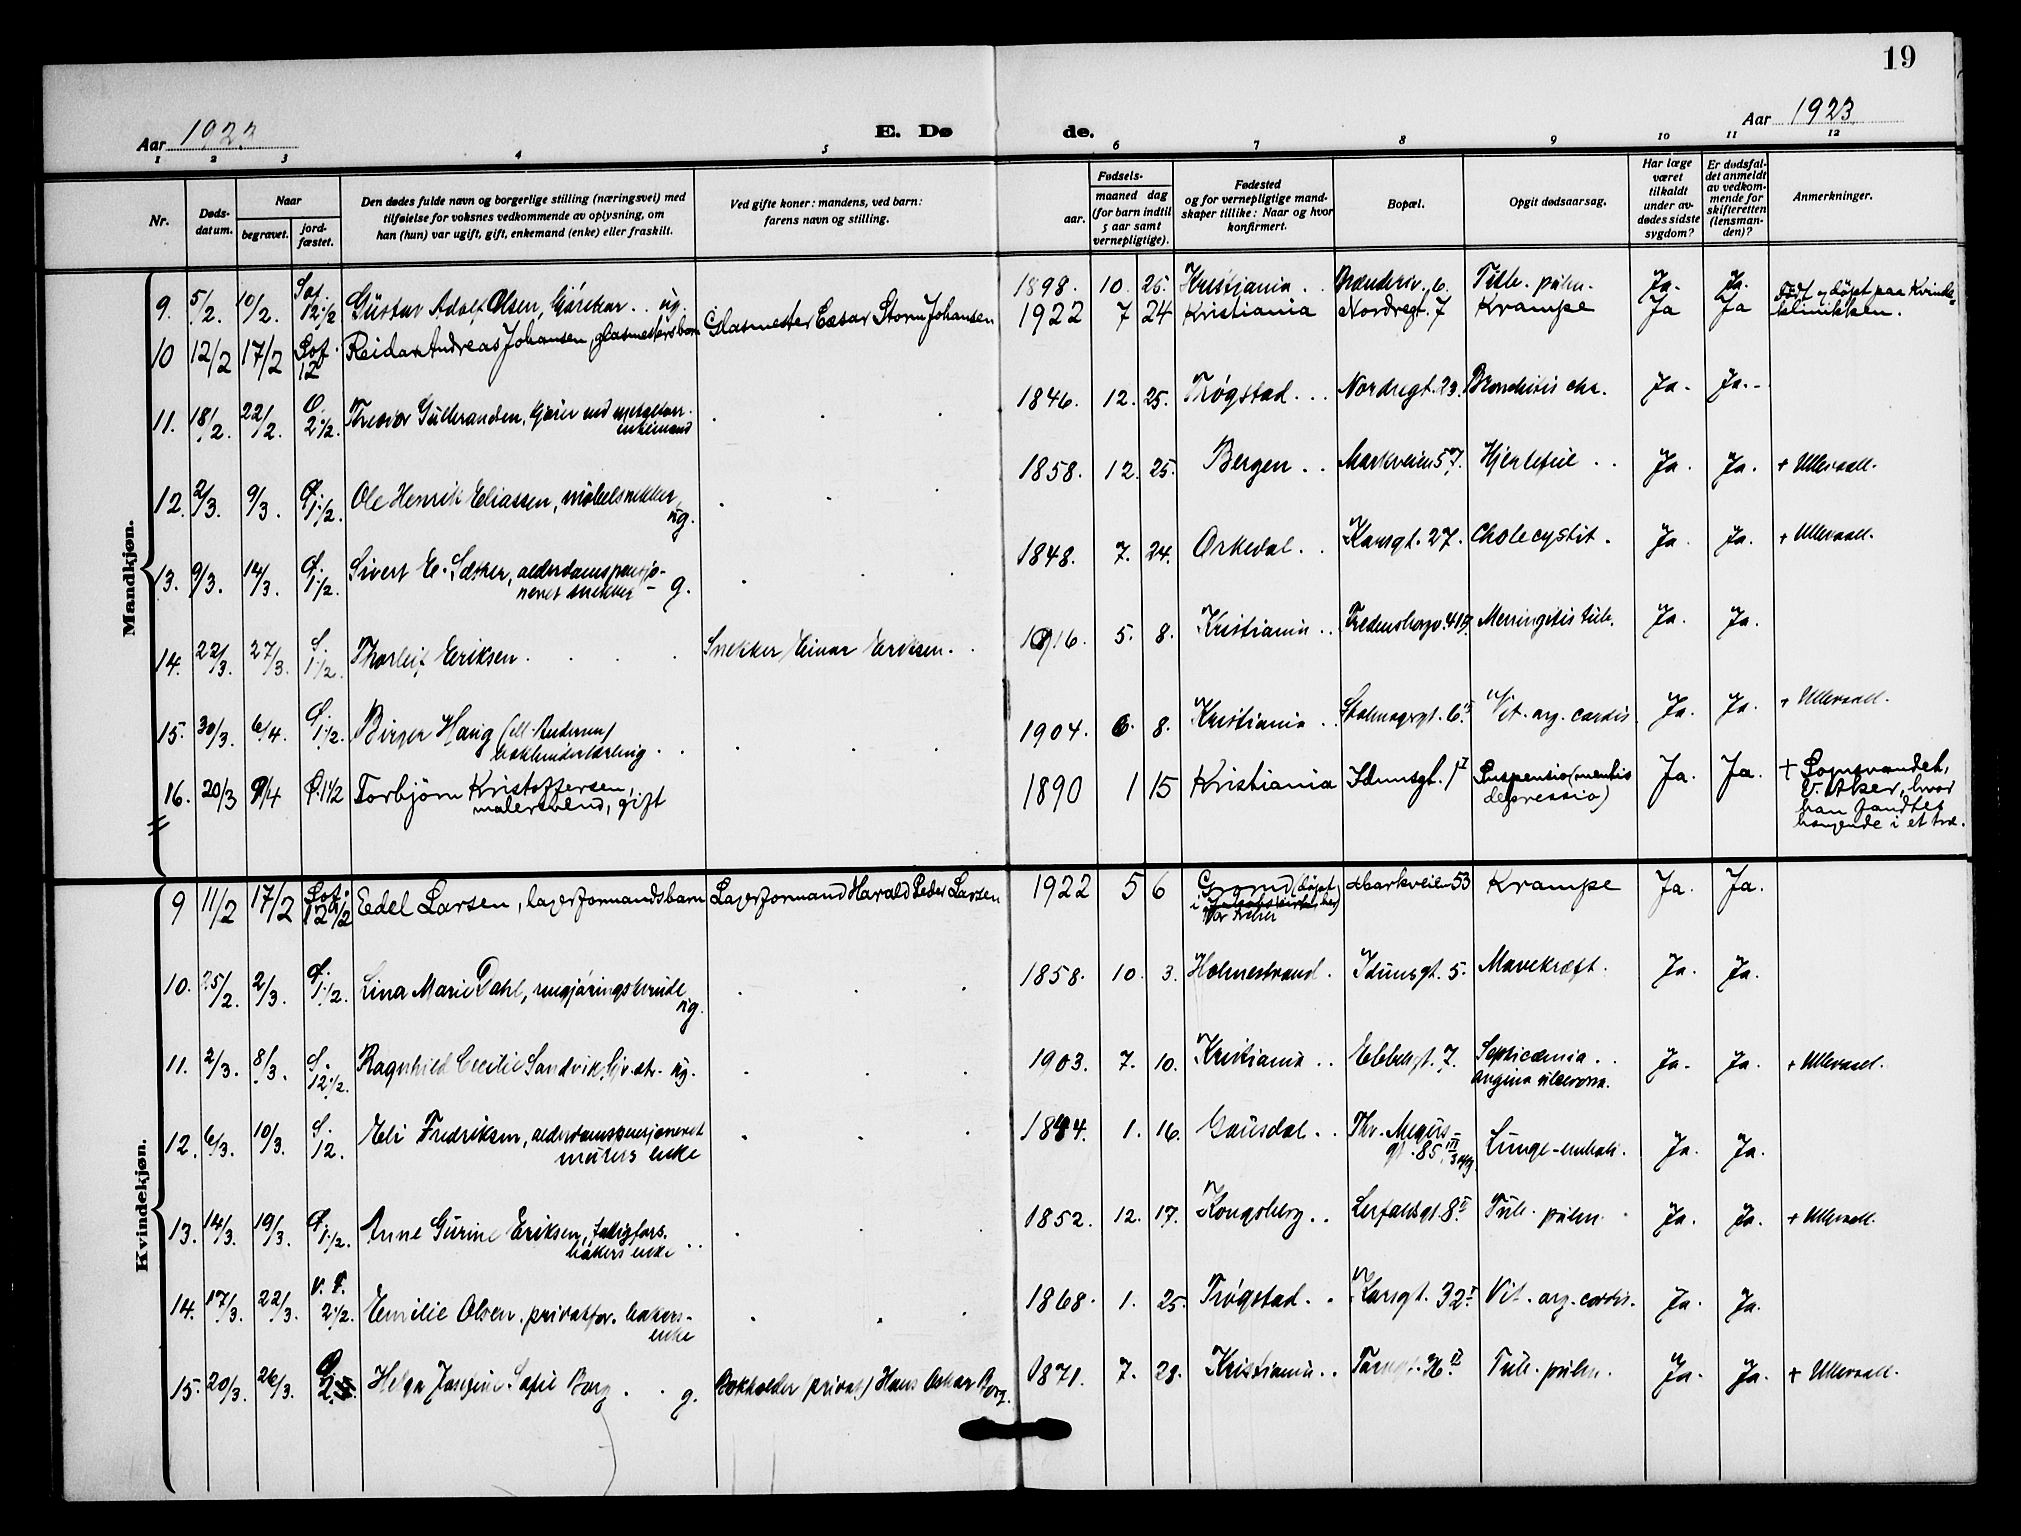 19
Aar 1923
E. Dø de.
Aar 1923
1 2 3 4 5 6 7 8 9 10 11 12
Nr.
Døds-
datum.
Naar
begravet.
jord-
fæstet.
Den dødes fulde navn og borgerlige stilling (næringsvei) med
tilføielse for voksnes vedkommende av oplysning, om
han (hun) var ugift, gift, enkemand (enke) eller fraskilt.
Ved gifte koner: mandens, ved barn:
farens navn og stilling.
Fødsels-
aar.
maaned dag
(for barn indtil
5 aar samt
vernepligtige).
Fødested
og for vernepligtige mand-
skaper tillike: Naar og hvor
konfirmert.
Bopæl.
Opgit dødsaarsag.
Har læge
været
tilkaldt
under av-
dødes sidste
sygdom?
Er dødsfal-
det anmeldt
av vedkom-
mende for
skifteretten
(lensman-
den)?
Anmerkninger.
Mandkjøn.
9. 5/2. 10/2. Sof. 12 1/2 Gustav Adolf Olsen, ug. 1898. 10. 25. Kristiania . . 6. Tub. pulm. Ja. Ja.
10 12/2 17/2 Sof. 12 Reidar Andreas Johansen, glasmestersbarn Glasmester Cæsar Storm Johansen 1922 7 24 Kristiania Nordregt. 7 Krampe Ja Ja Født og døpt paa Kvinde-
klinikken.
11. 18/2. 22/2. Ø. 2 1/2. enkemand 1846. 12. 25. Trøgstad . . . Nordregt. 23. Ja. Ja.
12. 2/3. 9/3. Ø. 1 1/2. Ole Henrik Eliassen, møbelsnekker
ug. 1858. 12. 25. Bergen . . Markveien 57. Hjertefeil . . Ja. Ja. + Ullevaal.
13. 9/3. 14/3. Ø. 1 1/2. Sivert E. Sæther, alderdomspensjo-
neret snekker – g. 1848. 7. 24. Orkedal . . 27. Cholecystit. Ja. Ja. + Ullevaal.
14. 22/3. 27/3. S. 1 1/2. Thorleif Eriksen. Snekker Einar Eriksen. 1916. 5. 8. Kristiania . . Fredensborgv. 41 Meningitis tub. Ja. Ja.
15. 30/3. 6/4. Ø. 1 1/2. Birger Haug
bokbinderlærling. 1904. 6. 8. Kristiania . . 6. Vit. org. cordis. Ja. Ja. + Ullevaal.
16. 20/3 9/4 Ø. 1 1/2 Torbjørn Kristoffersen,
malersvend, gift 1890 1 15 Kristiania Idunsgt. 1 I Suspensio (mentis
depressio) Ja. Ja. + Sognsvandet,
V. Aker, hvor
han fandtes
hængende i et træ.
Kvindekjøn.
9 11/2 17/2 Sof. 12 1/2 Edel Larsen, lagerformandsbarn Lagerformand Harald Peder Larsen 1922 5 6 (døpt
i Markveien 53 Krampe Ja. Ja.
10. 25/2. 2/3. Ø. 1 1/2. Lina Marie Dahl, rengjøringskvinde
ug. 1858. 10. 3. Holmestrand. Idunsgt. 5. Mavekræft. Ja. Ja.
11. 2/3. 8/3. S. 12 1/2. Ragnhild Cecilie Sandvik, ug. 1903. 7. 10. Kristiania . . Ebbelsgt. 7. Septicæmia . .
angina ulcerosa. Ja. Ja. + Ullevaal.
12. 6/3. 10/3. S. 12. Eli Fredriksen, alderdomspensjoneret
murers enke 1844. 1. 16. Gausdal . . Thv. Meyers-
gt. 85 III Lunge-emboli. Ja. Ja.
13. 14/3. 19/3. Ø. 1 1/2. Anne Gurine Eriksen, fattigfors.
bakers enke . . 1852. 12. 17. Kongsberg . . Lerfaldsgt. 8 II Tub. pulm. Ja. Ja. + Ullevaal.
14. 17/3. 22/3. V. F. 2 1/2. Emilie Olsen, privatfor. bakers-
enke 1868. 1. 25. Trøgstad . . 32 I Vit. org. cordis. Ja. Ja.
15. 20/3. 26/3. Ø. 2. Helga Josefine Sofie Borg . . g. Bokholder (privat) Hans Oskar Borg. 1871. 7. 28. Kristiania . . Tub. pulm. Ja. Ja. + Ullevaal.